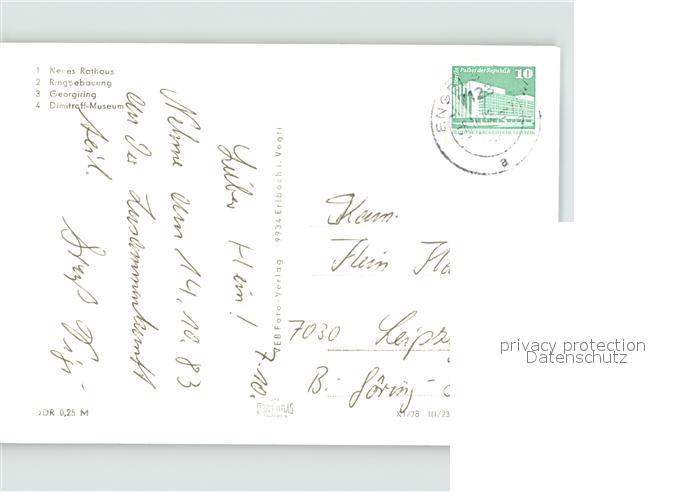 1 Neues Rathaus
2 Ringbebauung
3 Georgiring
4 Dimitroff-Museum
Lieber Hein! 7.10.
Nehme am 14.10.83
an der Zusammenkunft
teil.
Gruß
VEB Foto-Verlag 9934 Erlbach i. Vogtl
Palast der Republik 10
Fam.
Hein
7030 Leipzig
B.-Göring-
DDR 0,25 M
III/23
a
privacy protection
Datenschutz